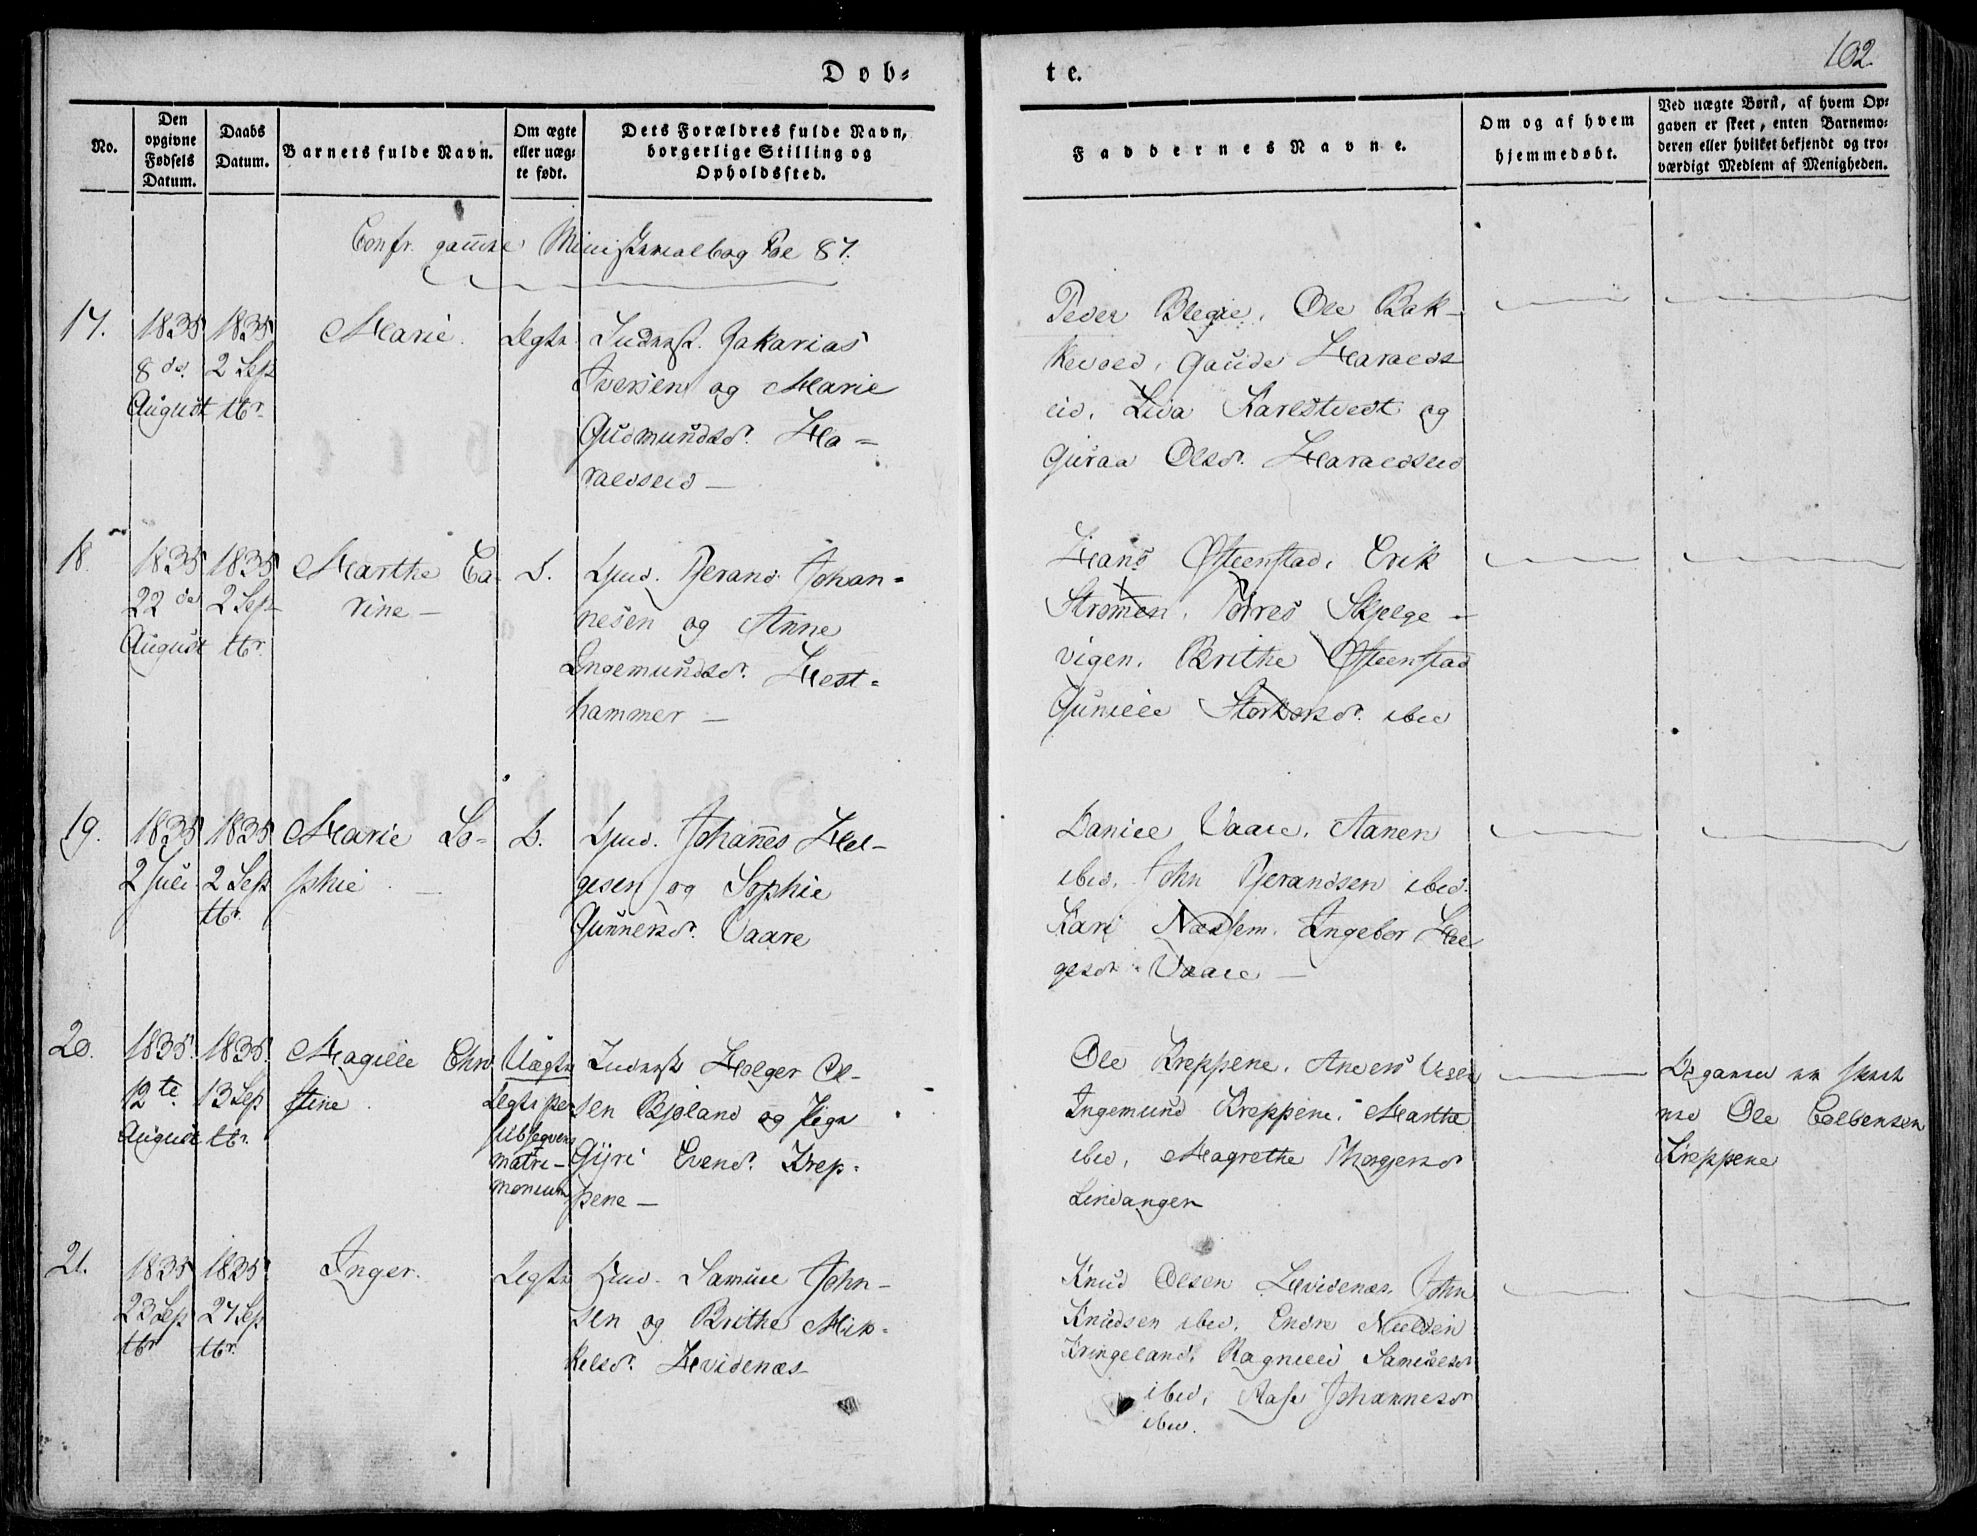 102.
Døb-
te.
No.
Den
opgivne
Fødsels
Datum.
Daabs
Datum.
Barnets fulde Navn.
Om ægte
eller uæg-
te født.
Dets Forældres fulde Navn,
borgerlige Stilling og
Opholdssted.
Faddernes Navne.
Om og af hvem
hjemmedøbt.
Ved uægte Børn, af hvem Op-
gaven er skeet, enten Barnemo-
deren eller hvilket bekjendt og tro-
værdigt Medlem af Menigheden.
Confr. gamle Ministerialbog Fol 87.
17.
1835
8de
August
1835
2 Sep
tbr.
Marie.
Ægte
Inderst. Zakarias
Iversen og Marie
Gudmundsd. Ha-
raldseid —
Peder Blegie, Ole Bak-
kevold, Gaude Haralds
eid, Liva Karlstvedt og
Guraa Olsd. Haraldseid
18.
1835
22de
August
1835
2 Sep
tbr.
Marthe Ca-
rine —
Æ.
Hund. Tjerand Johan-
nesen og Anne
Ingemundsd. Hest-
hammer —
Hans Østeenstad, Erik
Strømen, Torres Skjelge-
vigen, Brithe Østeenstad
Gunille Storkorsd. ibid
19.
1835
2 Juli
1835
2 Sep
tbr.
Marie So-
phie —
Æ.
Johannes Hel-
gesen og Sophie
Gunnersd. Vaare
Daniel Vaare, Aanen
ibid, John Tjerandsen ibid.
Kari Næssem, Ingebor Hel
gesd. Vaare —
20.
1835.
12te
August
1835.
13 Sep
tbr.
Magille Chri
stine.
Uægte
Ægte per
subseqvens
matri-
monium
Inderst Holger Ol-
sen Bjoland og Pige
Gyri Evend. Krep-
pene —
Ole Kreppene, Anders
Ingemund Kreppene, Marthe
ibid, Magrethe Thorgersd
Lindanger
Opgaven er skeet
ved Ole Colbensen
Kreppene
21.
1835
23 Sep
tbr
1835
27 Sep
tbr.
Inger.
Ægte
Samuel John-
sen og Brithe Mik-
kelsd. Hvidenæs
Knud Olsen Hvidenæs, John
Knudsen ibid, Endre Nielsen
Kringeland, Ragnild Samuelsd
ibid, Aase Johannesd
ibid.